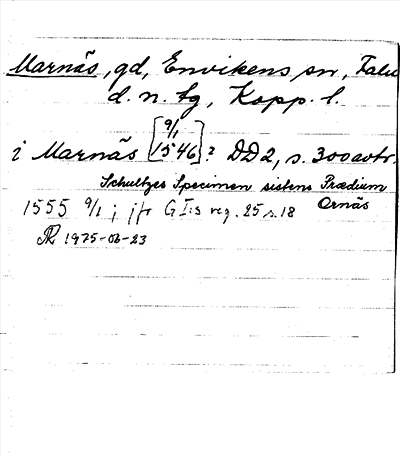 Marnäs, gd, Envikens sn, Falu
d. n. tg, Kopp. l.
i Marnäs [9/1 1546]? DD2, s. 300 avtr.
Schultzes Specimen sistens Prædium Ornäs
1555 9/1 ; jfr G I:s reg. 25 s. 18
1975-06-23